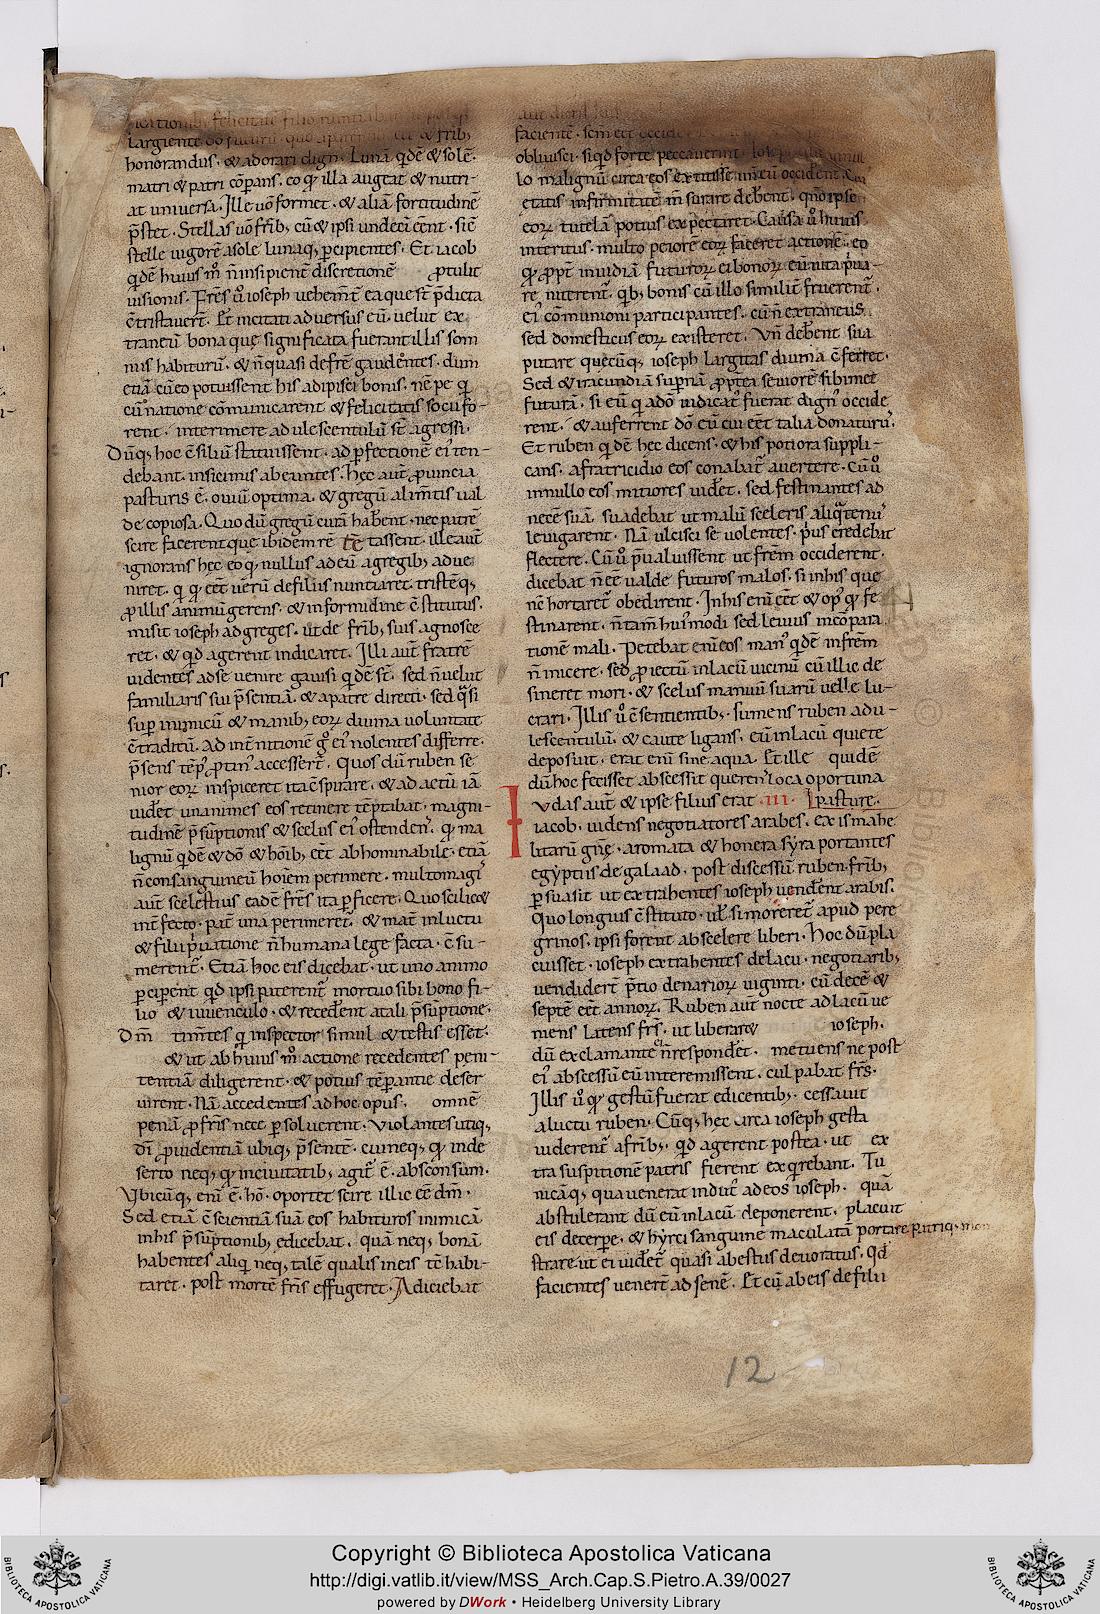 largiente do futurū quo
honorandus· & adorari dign̄· Lunā qdē & solē·
matri & patri cōparans· eo q illa augeat & nutri-
at universa· Ille uō formet· & aliā fortitudinē
p̄stet· Stellas uō frīb; cū & ipsi undeci ēent· sic̄
stelle uigorē a sole lunaq; p̄cipientes· Et iacob
qdē huius m̊ n̄ insipienē discretionē ꝓtulit
uisionis· Frēs ů ioseph uehem̄t ea que st̄ p̄dicta
c̄tristauer̄t· Et incitati adversus eū· uelut ex
traneū bona que significata fuerant illis som
nus habiturū· & n̄ quasi defrē gaudentes· dum
etiā cū eo potuissent his adipisci bonis· nē pe q
cū natione cōmunicarent & felicitatis socii fo-
rent· interimere adulescentulū st̄ agressi·
Dūq; hoc c̄siliū statuissent· ad p̄fectionē ei' ten-
debant· insicimis abeuntes· Hec aut̄ ꝓuincia
pasturis ē· ouiū optima· & gregū alim̄tis ual
de copiosa· Quo dū gregū curā habent· nec patrē
scire facerent que ibidem rē ēē tassent· ille aut̄
ignorans hęc eo q nullus ad eū a gregib; adue
niret· q q ēet uerū de filiis nuntiaret· tristēq;
ꝓ illis animū gerens· & in formidine c̄stitutus·
misit ioseph ad greges· ut de frīb; suis agnosce
ret· & qd agerent indicaret· Illi aut̄ fratrē
uidentes ad se uenire gauisi qdē st̄· sed n̄ uelut
familiaris sui p̄sentiā· & a patre directi· sed qsi
sup̄ inimicū & manib; eoꝝ diuina uoluntate
c̄traditū· Ad int̄nitionē g̊ ei' nolentes differre·
p̄sens tēp' ꝓtin' accesser̄t· Quos dū ruben se
nior eoꝝ inspiceret ita c̄spirare· & ad actū iā
uidet unanimes eos retinere tēptabat· magni-
tudinē p̄sūptionis & scelus ei' ostendens· q ma
lignū qdē & dō & hoīb; ēet abhominabile· etiā
n̄ consanguineū hoīem perimere· multo magi'
aut̄ scelestius eadē frēs ita p̄ficere· Quo scilic&
int̄fecto· pat̄ una perimeret̄· & mat̄ in luctu
& filii p̄uatione n̄ humana lege facta· c̄su-
merent̄· Etiā hoc eis dicebat· ut uno animo
p̄ciperent qd ipsi paterent̄ mortuo sibi bono fi-
lio & iuuenculo· & recedent a tali p̄sūptione·
Dm̄ timentes q inspector simul & testis esset·
& ut ab huius m̊ actione recedentes peni-
tentiā diligerent· & potius tēperantie deser
uirent· Nā accedentes ad hoc opus· omnē
penā ꝓ frīs nece persoluerent· Violantes utiq;
dī ꝓuidentiā ubiq; p̄sentē· cui neq; q in de
serto neq; q in ciuitatib; agit̄ ē· absconsum·
Vbicūq; enī ē· hō· oportet scire illic ēē dm̄·
Sed etiā c̄scientiā suā eos habituros inimicā
in his p̄sūptionib; edicebat· quā neq; bonā
habentes aliq neq; talē qualis in eis tē habi-
taret· post mortē frīs effugeret· Adiciebat
oblivisci· siqd forte peccauerint·
lo malignū circa eos extitisse
etatis infirmitatē
eoꝝ tutelā potius expectaret· Causa ů huius
interitus· multo peiorē eoꝝ faceret actionē· eo
q ꝓpt̄ inuidiā futuroꝝ ei bonoꝝ eū uita p̄ua-
re niterent̄· qb; bonis cū illo similit̄ fruerent̄·
ei' cōmunioni participantes· cū n̄ extraneus·
sed domesticus eoꝝ existeret· Vn̄ debent sua
putare quecūq; ioseph largitas diuina c̄ferret·
Sed & iracundiā sup̄nā ꝓpt̄ea seuiorē sibimet
futurā· si eū q a dō iudicat' fuerat dign' occide
rent· & auferrent dō eū cui eēt talia donaturu'·
Et ruben qdē hęc dicens· & his potiora suppli-
cans· a fratricidio eos conabat̄ auertere· Cū ů
in nullo eos mitiores uidet· sed festinantes ad
necē suā· suadebat ut malū sceleris aliqtenu'
leuigarent· Nā ulcisci se uolentes· p̄us credebat
flectere· Cū ů p̄ualuissent ut frēm occiderent·
dicebat n̄ ēē ualde futuros malos· si in his que
nē hortaret̄ obedirent· In his enī ēet & op' q fe
stinarent· n̄ tam̄ hui'modi sed leuius in copara
tione mali· Petebat enī eos man' qdē in frēm
n̄ inicere· sed ꝓiectū in lacū uicinū cū illic de
sineret mori· & scelus manuū suarū uelle lu-
crari· Illis ů c̄sentientib; sumens ruben adu-
lescentulū· & caute ligans· eū in lacū quiete
deposuit· erat enī sine aqua· Et ille quidē
dū hoc fecisset abscessit querens loca oportuna
Iudas aut̄ & ipse filius erat ·III· pasture·
iacob· uidens negotiatores arabes· ex ismahe
litarū gn̄ę· aromata & honera syra portantes
egyptiis de galaad· post discessū ruben· frīb;
p̄suasit ut extrahentes ioseph uendent arabis·
Quo longius c̄stituto· ut si moreret̄ apud pere
grinos· ipsi forent ab scelere liberi· Hoc dū pla
cuisset· ioseph extrahentes de lacu· negotiarib;
uendidert̄ p̄tio denarioꝝ uiginti· cū decē &
septē ēet annoꝝ· Ruben aut̄ nocte ad lacū ue
niens Latens frs̄· ut liberar& ioseph·
dū exclamante n̄ responderet· metuens ne post
ei' abscessū eū interemissent· culpabat frs̄·
Illis ů q gestū fuerat edicentib;· cessauit
a luctu ruben· Cūq; hęc circa ioseph gesta
uiderent̄ a frīb;· qd agerent postea· ut ex
tra suspitionē patris fierent exqrebant· Tu
nicāq; qua uenerat indut' ad eos ioseph· quā
abstulerant dū eū in lacū deponerent· placuit
eis decerpe· & hyrci sanguine maculatā portare patriq; mon
strare ut ei uideret̄ quasi a bestiis deuoratus· qd
facientes uenert̄ ad senē· Et cū ab eis de filii
12
Copyright © Biblioteca Apostolica Vaticana
http://digi.vatlib.it/view/MSS_Arch.Cap.S.Pietro.A.39/0027
powered by DWork • Heidelberg University Library
BIBLIOTECA APOSTOLICA VATICANA
BIBLIOTECA APOSTOLICA VATICANA